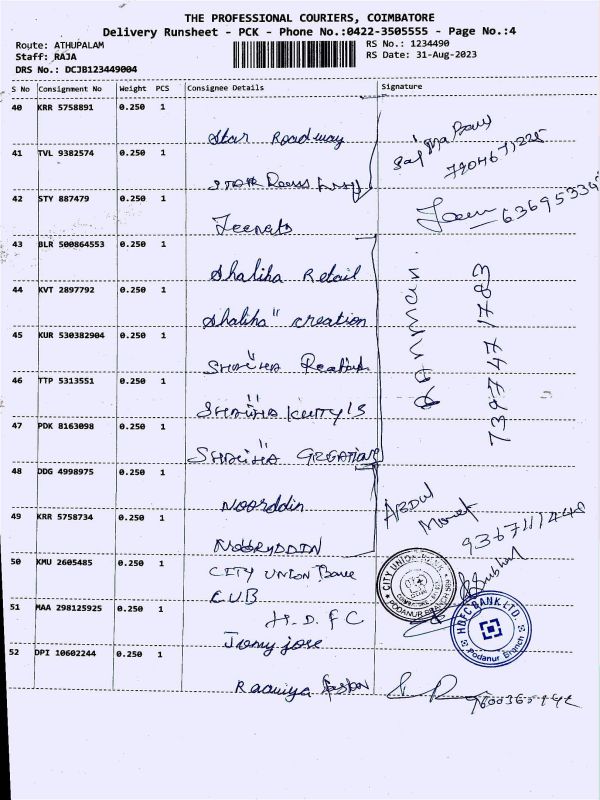 THE PROFESSIONAL COURIERS, COIMBATORE
Delivery Runsheet - PCK - Phone No.:0422-3505555 - Page No.:4
Route: ATHUPALAM RS No.: 1234490
Staff: RAJA RS Date: 31-Aug-2023
DRS No.: DCJB123449004
S No Consignment No Weight PCS Consignee Details Signature
40 KRR 5758891 0.250 1
Star Roadway
41 TVL 9382574 0.250 1
7904671225
42 STY 887479 0.250 1
Jeenats
43 BLR 500864553 0.250 1
Shaliha Retail
44 KVT 2897792 0.250 1
Shaliha creation
Rahman
7397471783
45 KUR 530382904 0.250 1
SHALIHA
46 TTP 5313551 0.250 1
SHALIHA KUTTY'S
47 PDK 8163098 0.250 1
SHALIHA CREATIONS
48 DDG 4998975 0.250 1
Noorddin
ABDUL
49 KRR 5758734 0.250 1
NOORYDDIN
50 KMU 2605485 0.250 1
CITY UNION Bank
C.U.B
CITY UNION BANK
PODANUR BRANCH
51 MAA 298125925 0.250 1
H.D.F.C
Jomy jose
HDFC BANK LTD.
Podanur Branch
52 DPI 10602244 0.250 1
Raamiya